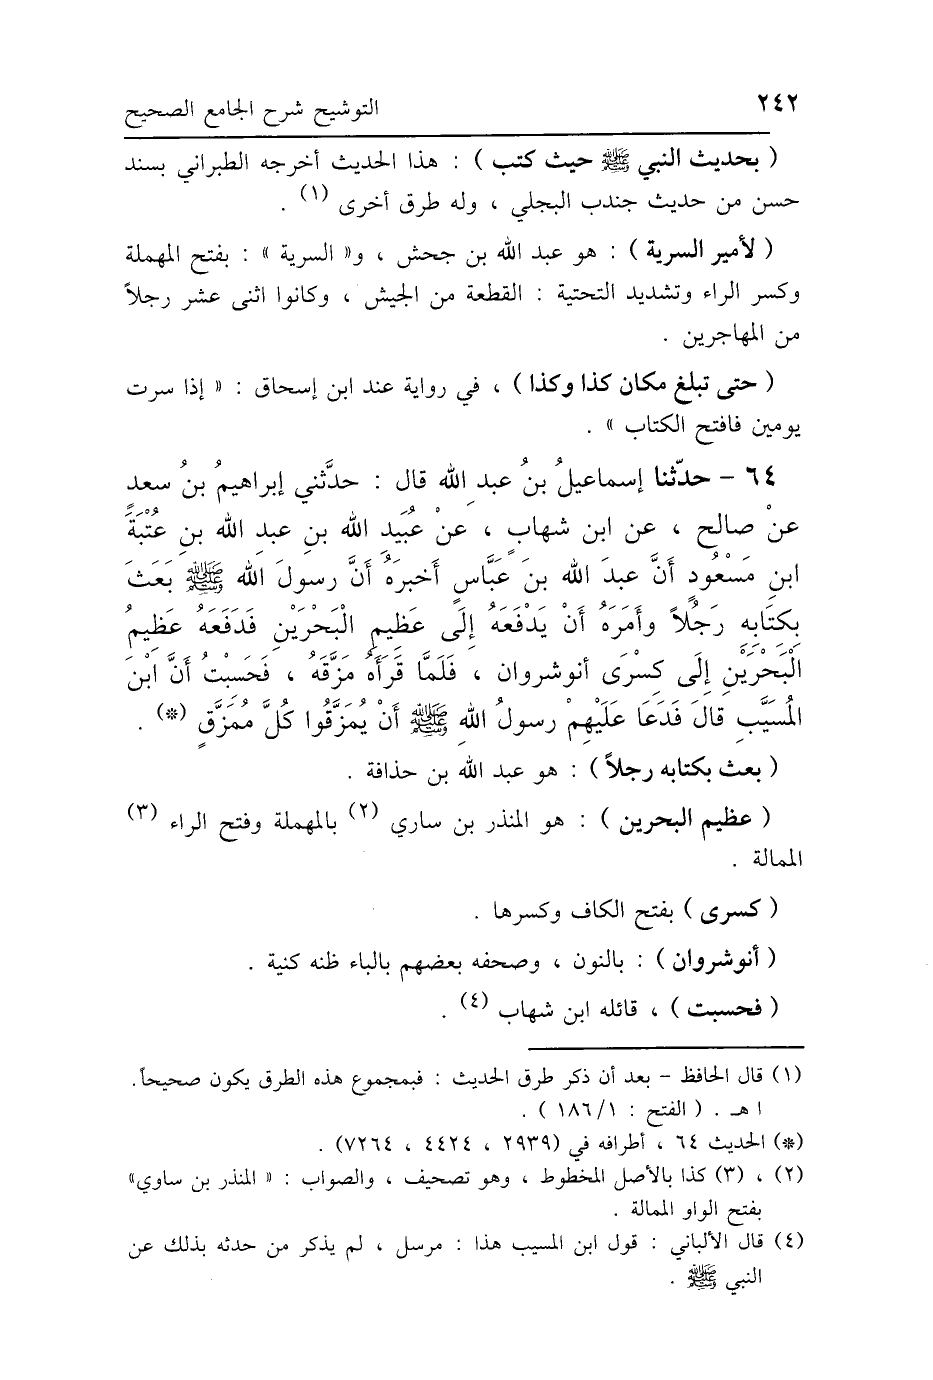 ٢٤٢ التوشيح شرح الجامع الصحيح
( بحديث النبي ﷺ حيث كتب ) : هذا الحديث أخرجه الطبراني بسند
حسن من حديث جندب البجلي ، وله طرق أخرى (١) .
( لأمير السرية ) : هو عبد الله بن جحش ، و« السرية » : بفتح المهملة
وكسر الراء وتشديد التحتية : القطعة من الجيش ، وكانوا اثنى عشر رجلاً
من المهاجرين .
( حتى تبلغ مكان كذا وكذا ) ، في رواية عند ابن إسحاق : « إذا سرت
يومين فافتح الكتاب » .
٦٤ - حدّثنا إسماعيلُ بنُ عبدِ الله قال : حدَّثني إبراهيمُ بنُ سعد
عنْ صالح ، عن ابن شهابٍ ، عنْ عُبَيدِ الله بنِ عبدِ الله بنِ عُتْبَةَ
ابنِ مَسْعُودٍ أنَّ عبدَ الله بنَ عَبَّاسٍ أخبرَهُ أنَّ رسولَ الله ﷺ بَعَثَ
بِكتَابِه رَجُلاً وأمَرَهُ أنْ يَدْفَعَهُ إلَى عَظِيمِ الْبَحْرَيْنِ فَدَفَعَهُ عظِيمُ
الْبَحْرَيْنِ إلَى كِسْرَى أنوشروان ، فَلَمَّا قَرَأَهُ مَزَّقَهُ ، فَحَسِبْتُ أنَّ ابْنَ
المُسَيَّبِ قالَ فَدَعَا عَلَيْهِمْ رسولُ اللهِ ﷺ أنْ يُمَزَّقُوا كُلَّ مُمَزَّقٍ (*) .
( بعث بكتابه رجلاً ) : هو عبد الله بن حذافة .
( عظيم البحرين ) : هو المنذر بن ساري (٢) بالمهملة وفتح الراء (٣)
الممالة .
( كسرى ) بفتح الكاف وكسرها .
( أنوشروان ) : بالنون ، وصحفه بعضهم بالباء ظنه كنية .
( فحسبت ) ، قائله ابن شهاب (٤) .
(١) قال الحافظ - بعد أن ذكر طرق الحديث : فبمجموع هذه الطرق يكون صحيحاً.
ا هـ . ( الفتح : ١/ ١٨٦ ) .
(*) الحديث ٦٤ ، أطرافه في (٢٩٣٩ ، ٤٤٢٤ ، ٧٢٦٤) .
(٢) ، (٣) كذا بالأصل المخطوط ، وهو تصحيف ، والصواب : « المنذر بن ساوي»
بفتح الواو الممالة .
(٤) قال الألباني : قول ابن المسيب هذا : مرسل ، لم يذكر من حدثه بذلك عن
النبي ﷺ .